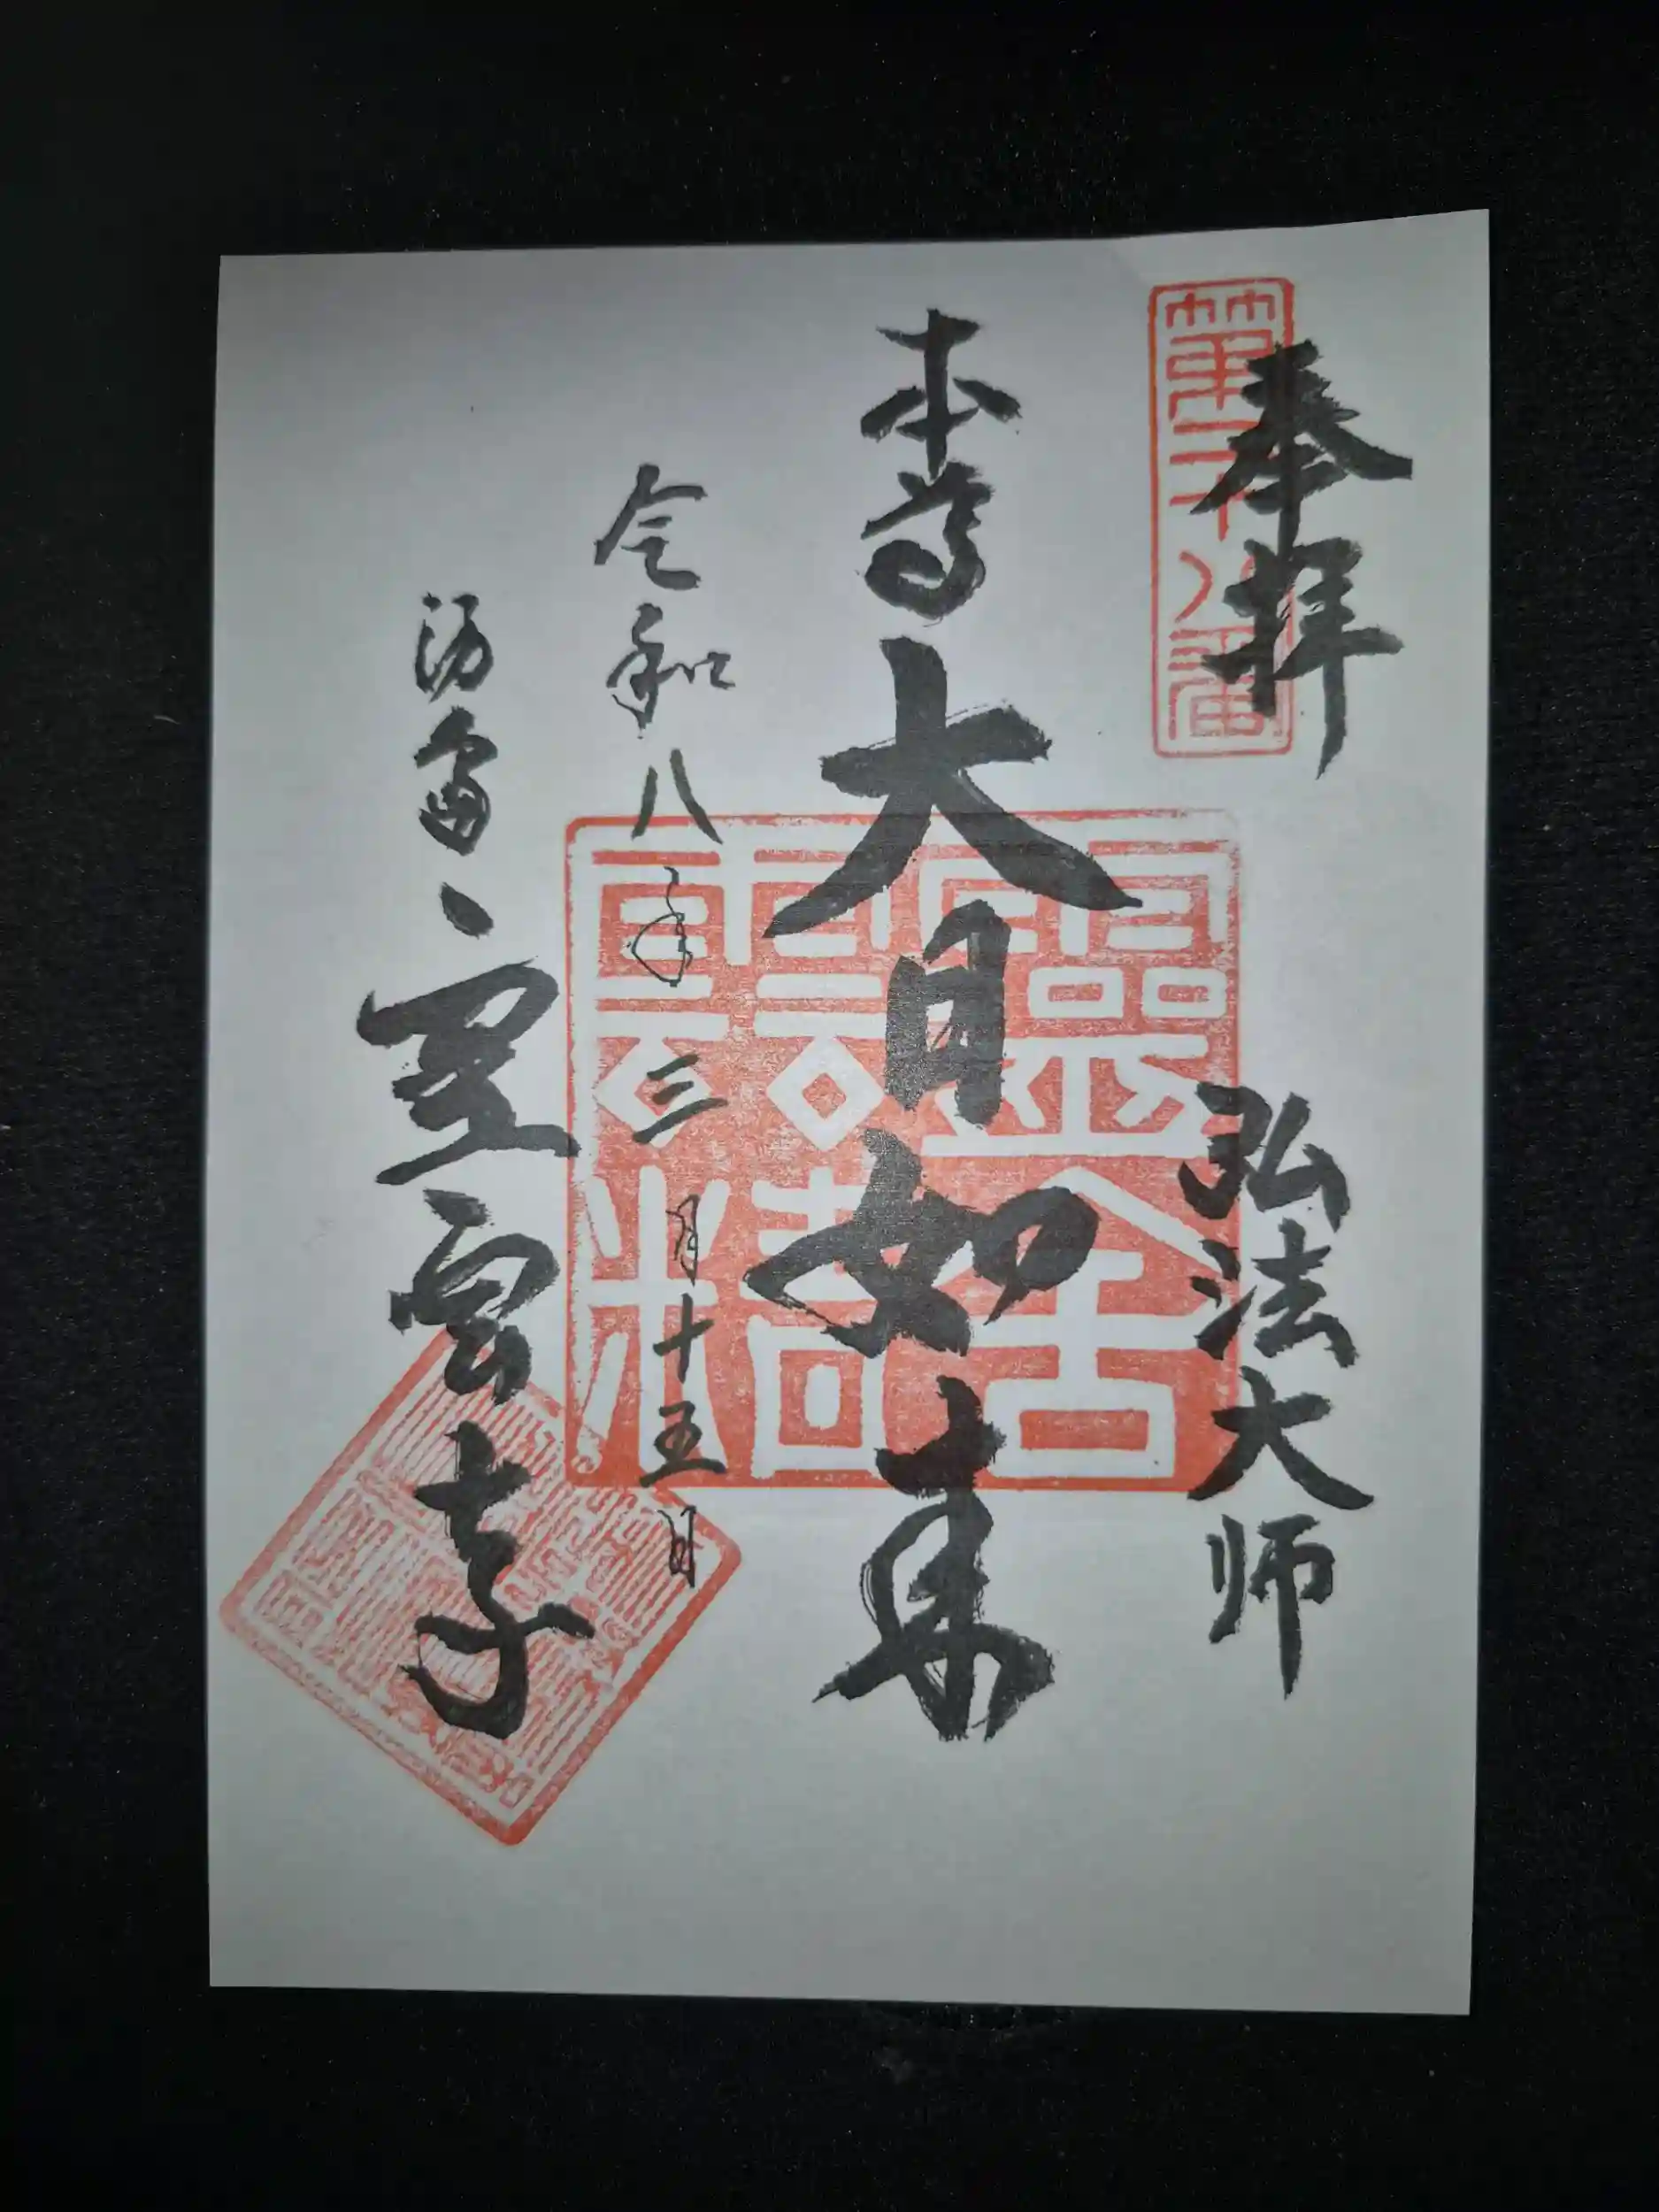 奉拝
弘法大师
第二十八番
本尊
大日如来
令和八年三月十五日
湯島
霊雲寺